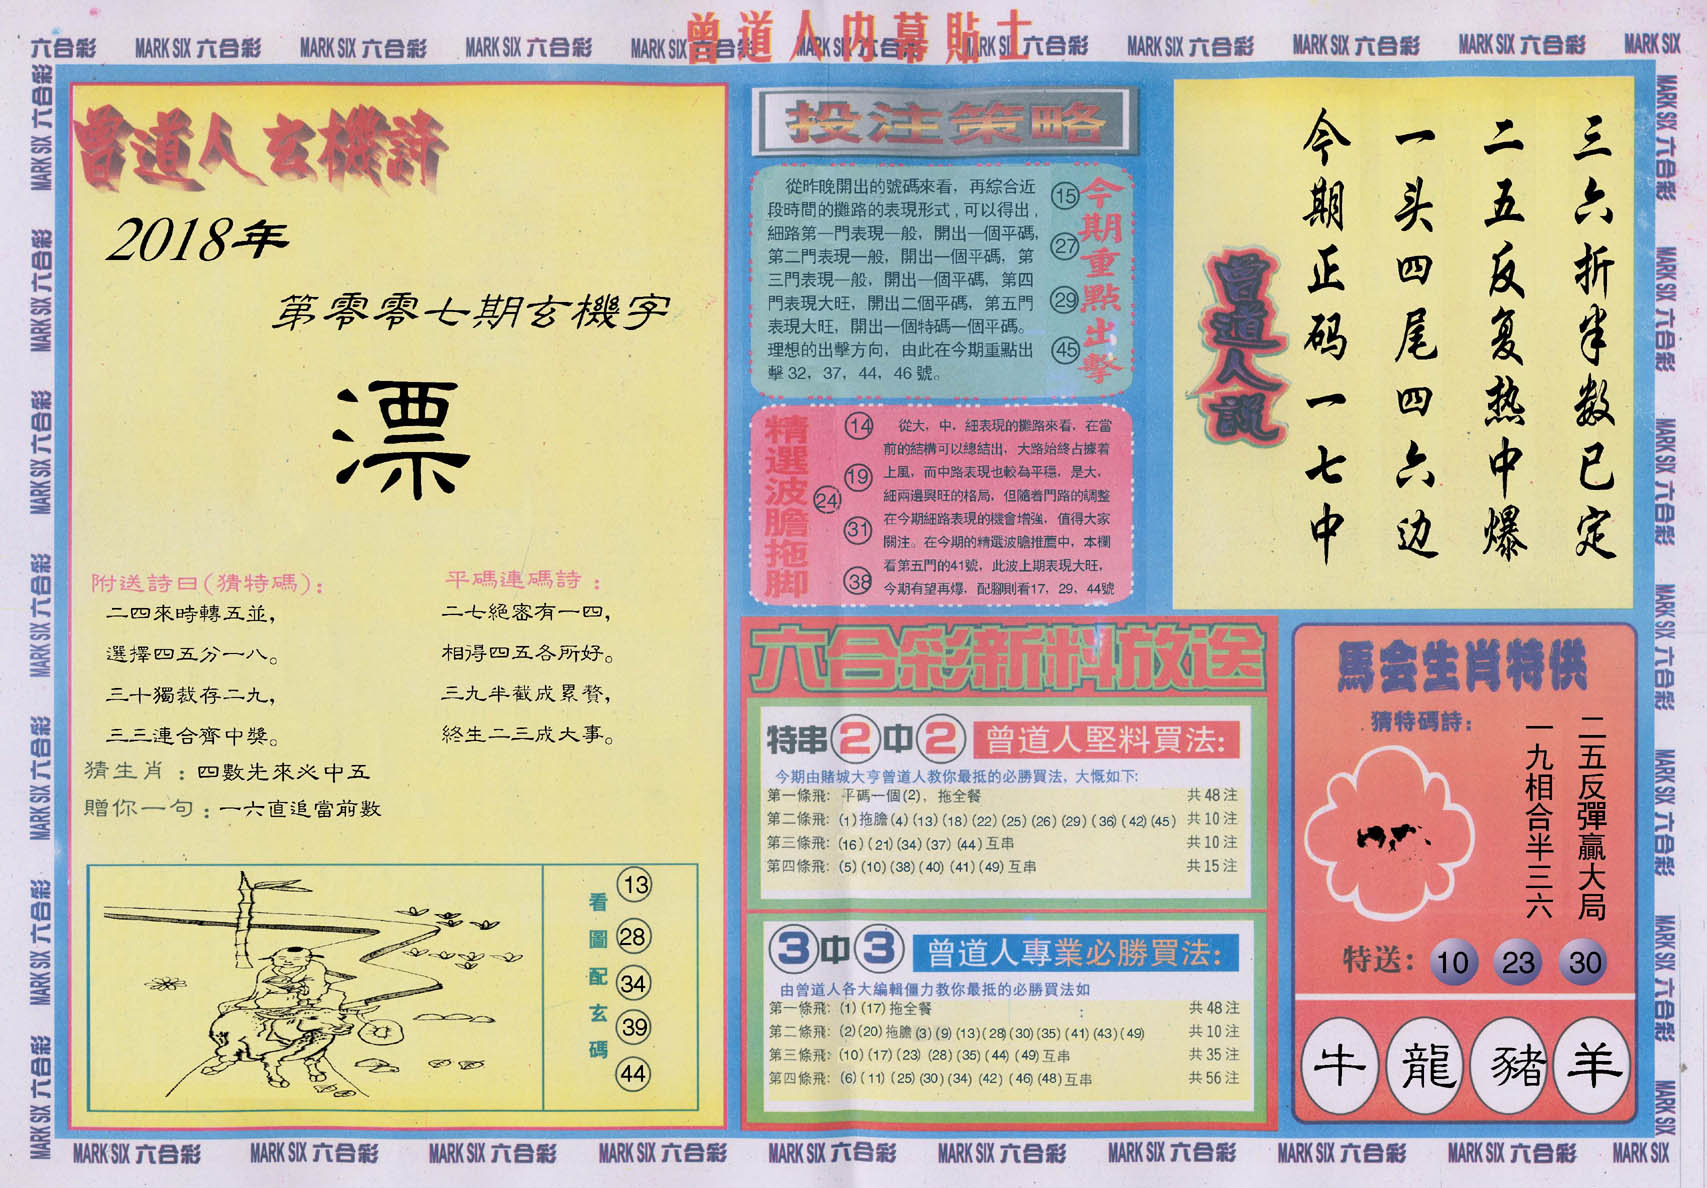 曾道人内幕貼士
六合彩 MARK SIX 六合彩 MARK SIX 六合彩 MARK SIX 六合彩 MARK SIX 六合彩 MARK SIX 六合彩 MARK SIX 六合彩 MARK SIX 六合彩 MARK SIX 六合彩 MARK SIX
曾道人玄機詩
2018年
第零零七期玄機字
漂
附送詩曰(猜特碼)：
二四來時轉五並，
選擇四五分一八。
三十獨裁存二九，
三三連合齊中獎。
平碼連碼詩：
二七絕密有一四，
相得四五各所好。
三九半截成累贅，
終生二三成大事。
猜生肖：四數先來必中五
贈你一句：一六直追當前數
看圖配玄碼
13
28
34
39
44
投注策略
從昨晚開出的號碼來看，再綜合近
段時間的攤路的表現形式，可以得出，
細路第一門表現一般，開出一個平碼，
第二門表現一般，開出一個平碼，第
三門表現一般，開出一個平碼，第四
門表現大旺，開出二個平碼，第五門
表現大旺，開出一個特碼一個平碼。
理想的出擊方向，由此在今期重點出
擊32，37，44，46號。
15
27
29
45
今期重點出擊
精選波膽拖脚
14
19
24
31
38
從大，中，細表現的攤路來看，在當
前的結構可以總結出，大路始終占據着
上風，而中路表現也較為平穩，是大，
細兩邊興旺的格局，但隨着門路的調整
在今期細路表現的機會增強，值得大家
關注。在今期的精選波膽推薦中，本欄
看第五門的41號，此波上期表現大旺，
今期有望再爆，配腳則看17，29，44號
三六折半数已定
二五反复热中爆
一头四尾四六边
今期正码一七中
曾道人說
六合彩新料放送
特串2中2 曾道人堅料買法：
今期由賭城大亨曾道人教你最抵的必勝買法，大慨如下：
第一條飛：平碼一個(2)，拖全餐 共48注
第二條飛：(1)拖膽(4)(13)(18)(22)(25)(26)(29)(36)(42)(45) 共10注
第三條飛：(16)(21)(34)(37)(44)互串 共10注
第四條飛：(5)(10)(38)(40)(41)(49)互串 共15注
3中3 曾道人專業必勝買法：
由曾道人各大編輯僵力教你最抵的必勝買法如
第一條飛：(1)(17)拖全餐 共48注
第二條飛：(2)(20)拖膽(3)(9)(13)(28)(30)(35)(41)(43)(49) 共10注
第三條飛：(10)(17)(23)(28)(35)(44)(49)互串 共35注
第四條飛：(6)(11)(25)(30)(34)(42)(46)(48)互串 共56注
馬会生肖特供
猜特碼詩：
二五反彈贏大局
一九相合半三六
特送：10 23 30
牛 龍 豬 羊
MARK SIX 六合彩 MARK SIX 六合彩 MARK SIX 六合彩 MARK SIX 六合彩 MARK SIX 六合彩 MARK SIX 六合彩 MARK SIX 六合彩 MARK SIX 六合彩 MARK SIX 六合彩 MARK SIX